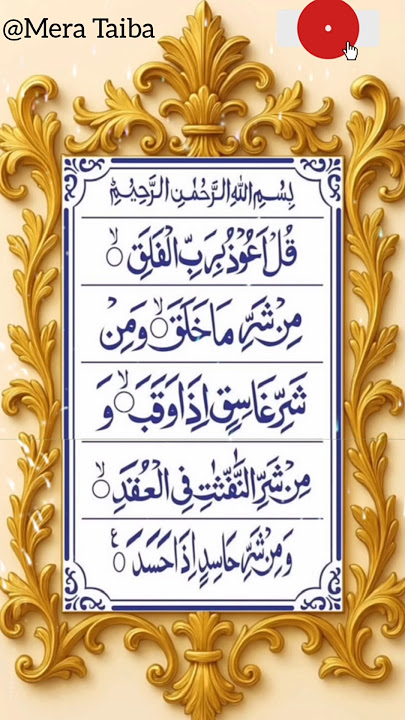 @Mera Taiba
بِسْمِ اللّٰهِ الرَّحْمٰنِ الرَّحِيْمِ
قُلْ اَعُوْذُ بِرَبِّ الْفَلَقِۙ
مِنْ شَرِّ مَا خَلَقَۙ وَمِنْ
شَرِّ غَاسِقٍ اِذَا وَقَبَۙ وَ
مِنْ شَرِّ النَّفّٰثٰتِ فِي الْعُقَدِۙ
وَمِنْ شَرِّ حَاسِدٍ اِذَا حَسَدَ